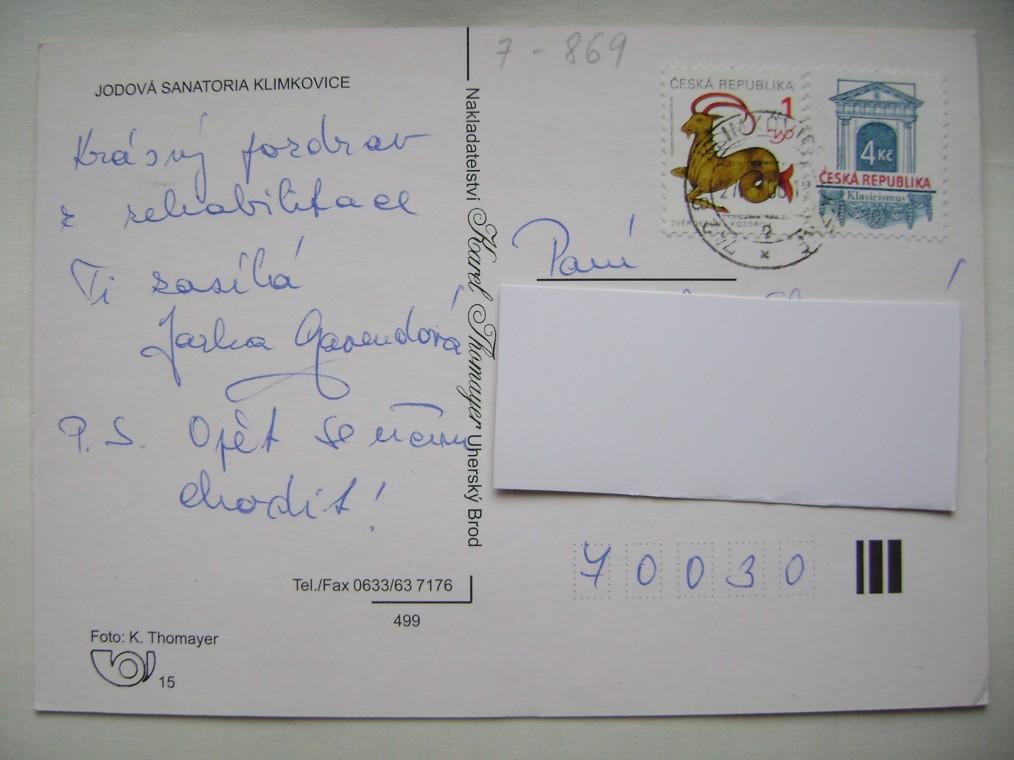 7 - 869
JODOVÁ SANATORIA KLIMKOVICE
Krásný pozdrav
z rehabilitace
Ti zasílá
Jarka Gavendová
P. S. Opět se učím
chodit!
Tel./Fax 0633/63 7176
499
Foto: K. Thomayer
15
Nakladatelství Karel Thomayer Uherský Brod
ČESKÁ REPUBLIKA
1
ZVĚROKRUH KOZOROH
4 Kč
ČESKÁ REPUBLIKA
Klasicismus
Paní
70030